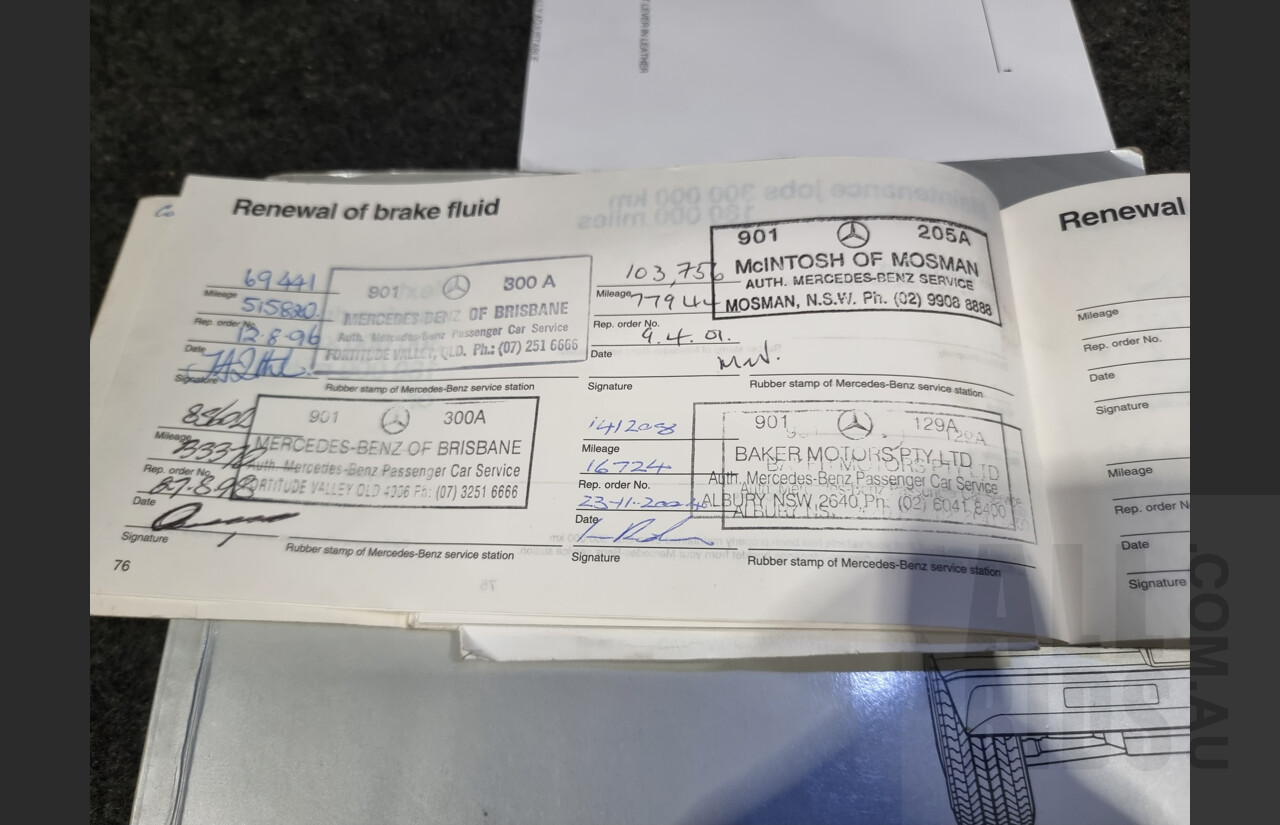 LEVER IN LEATHER
Renewal of brake fluid
69441
Mileage
515820
Rep. order No.
12.8.96
Date
Signature
901 300 A
MERCEDES-BENZ OF BRISBANE
Auth. Mercedes-Benz Passenger Car Service
FORTITUDE VALLEY, QLD. Ph.: (07) 251 6666
Rubber stamp of Mercedes-Benz service station
Mileage
Rep. order No.
27.8.98
Date
Signature
901 300A
MERCEDES-BENZ OF BRISBANE
Auth. Mercedes-Benz Passenger Car Service
FORTITUDE VALLEY QLD 4006 Ph: (07) 3251 6666
Rubber stamp of Mercedes-Benz service station
76
103,756
Mileage
77944
Rep. order No.
9.4.01.
Date
Signature
901 205A
McINTOSH OF MOSMAN
AUTH. MERCEDES-BENZ SERVICE
MOSMAN, N.S.W. Ph. (02) 9908 8888
Rubber stamp of Mercedes-Benz service station
141208
Mileage
16724
Rep. order No.
23-11-2004
Date
Signature
901 129A
BAKER MOTORS PTY LTD
Auth. Mercedes-Benz Passenger Car Service
ALBURY NSW 2640 Ph. (02) 6041 8400
Rubber stamp of Mercedes-Benz service station
Renewal
Mileage
Rep. order No.
Date
Signature
Mileage
Rep. order N
Date
Signature
.COM.AU